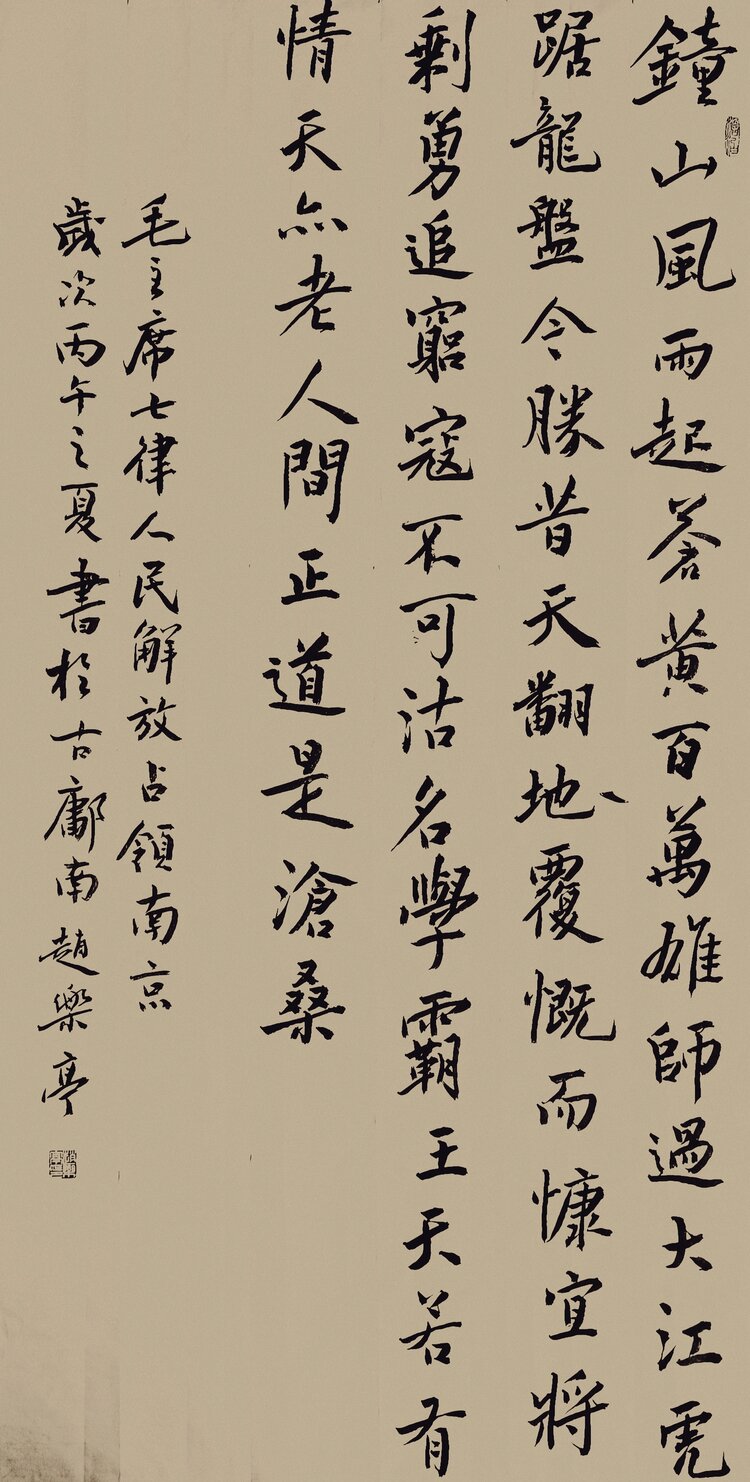 鐘山風雨起蒼黃百萬雄師過大江虎
踞龍盤今勝昔天翻地覆慨而慷宜將
剩勇追窮寇不可沽名學霸王天若有
情天亦老人間正道是滄桑
毛主席七律人民解放占領南京
歲次丙午之夏書於古鄘南趙樂亭